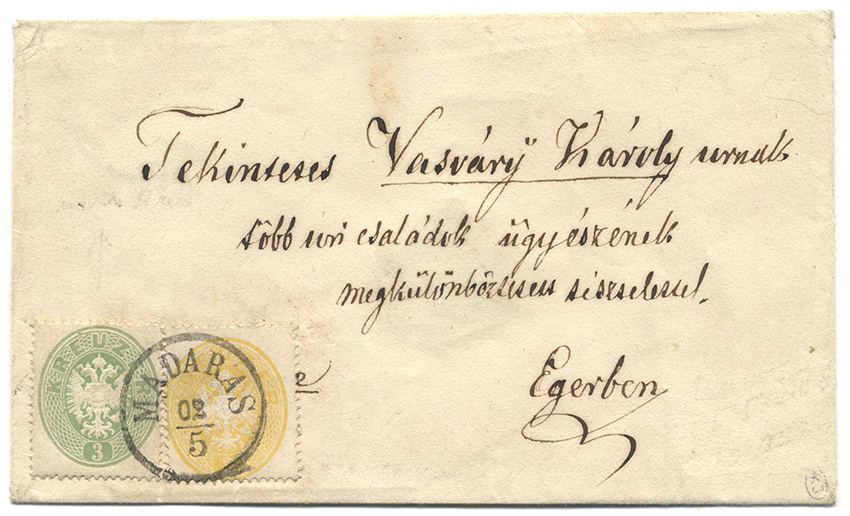 Tekintetes Vasváry Károly urnak
több uri családok ügyészének
megkülönböztetett tisztelettel.
Egerben
KREUZER
3
MADARAS
02
5
2